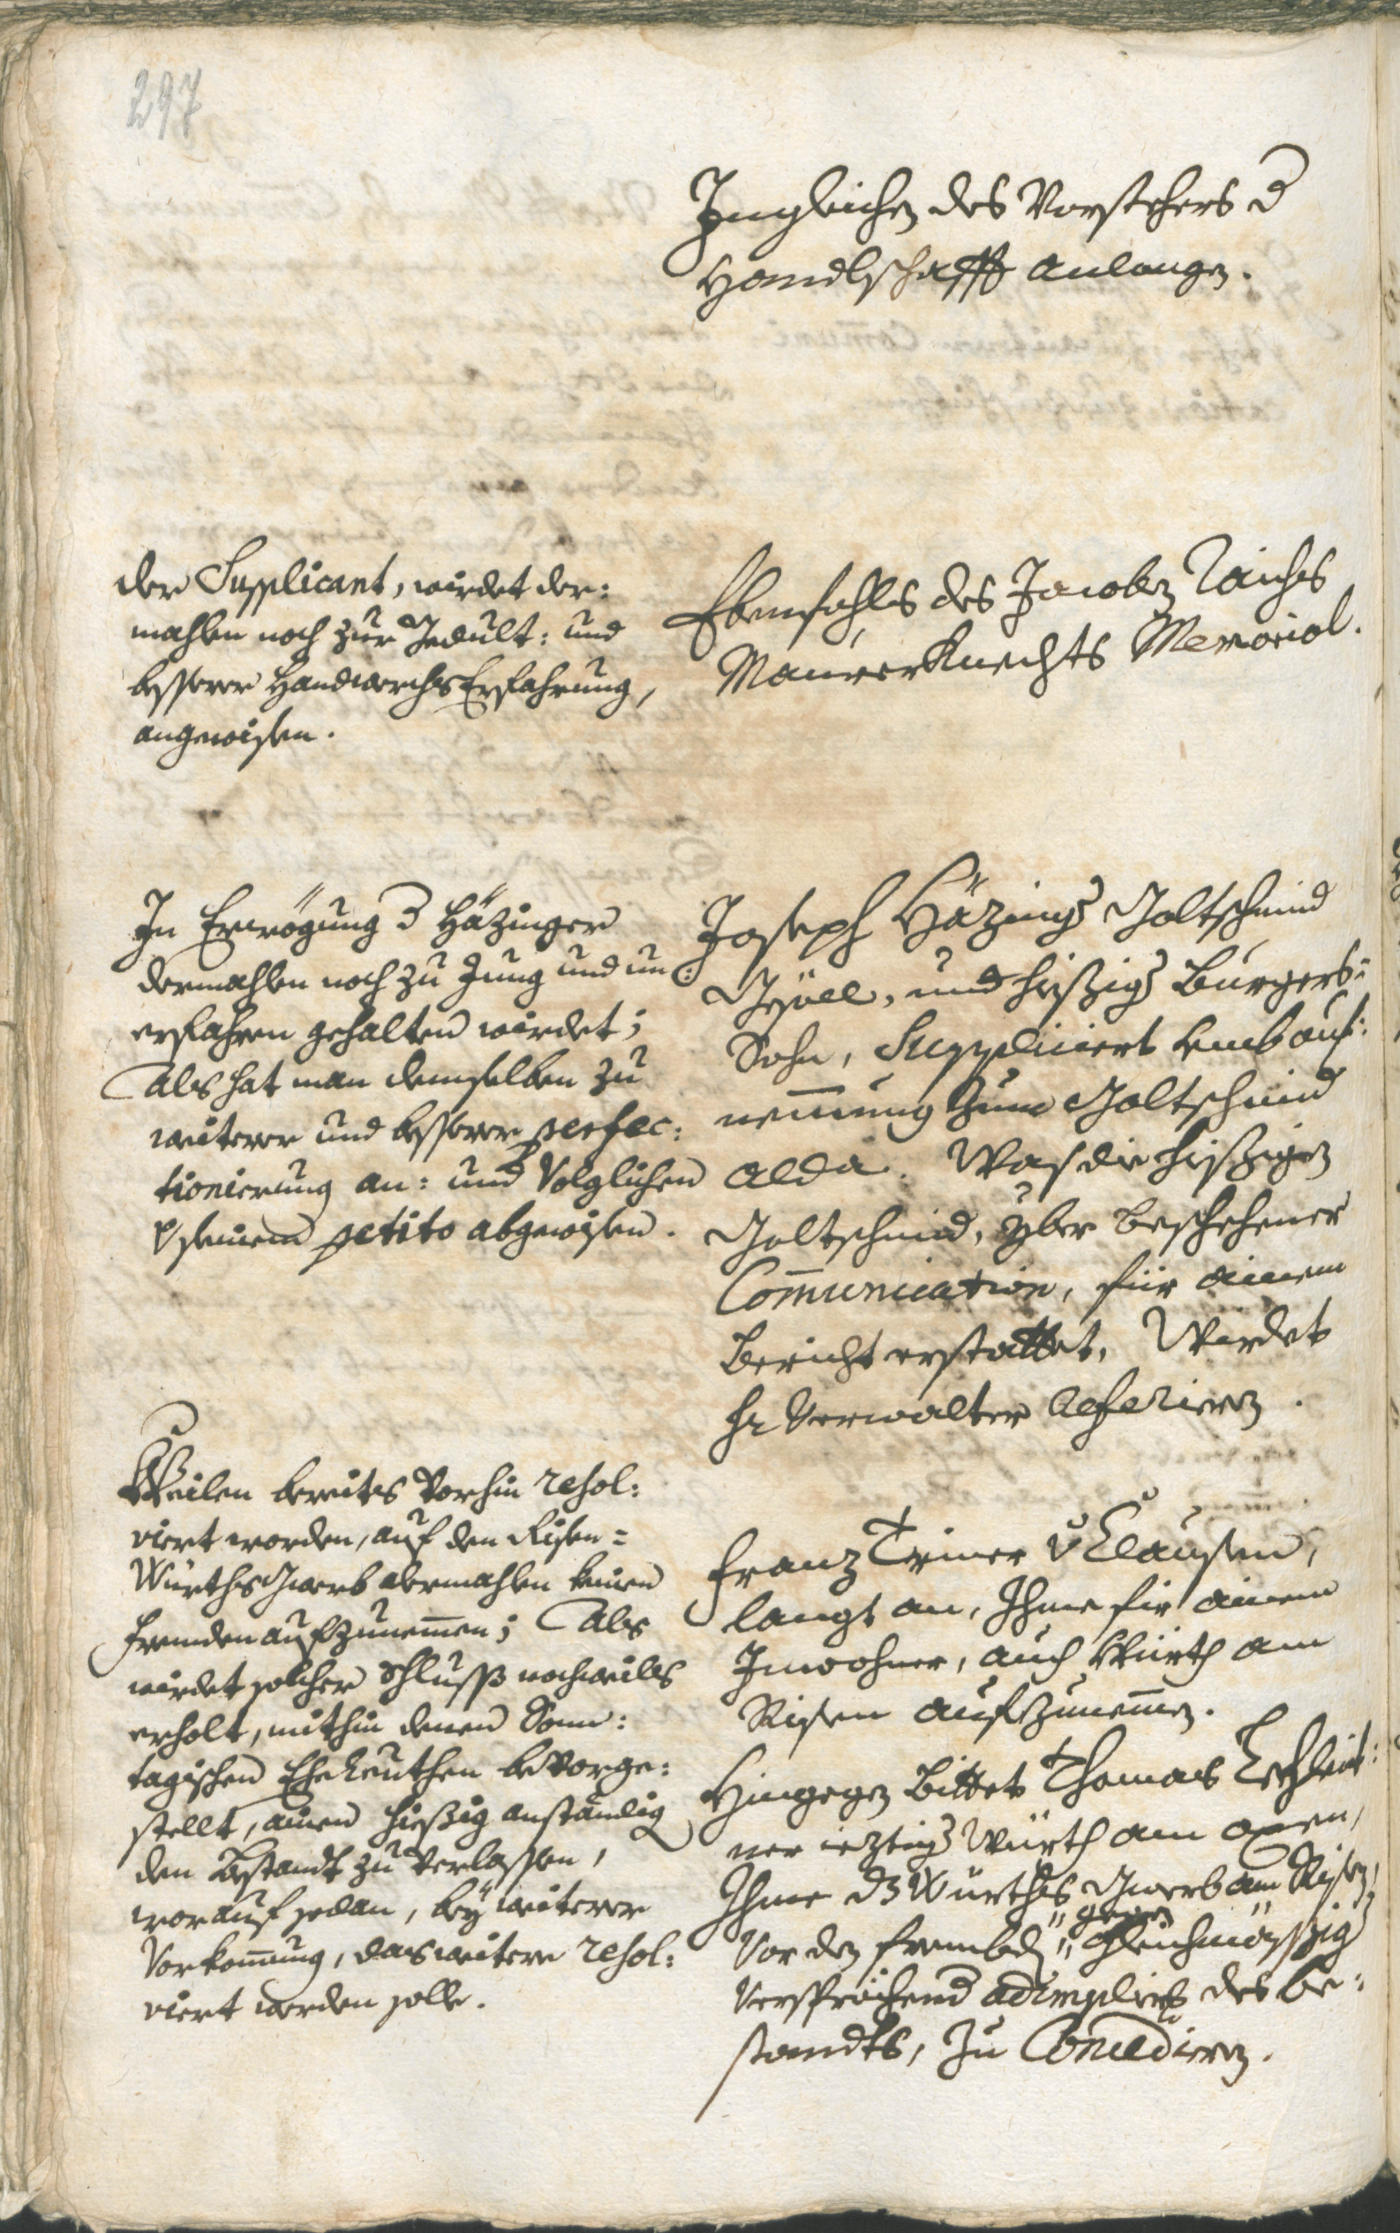 297
Ingleichen des Vorstehers d
Handlschafft anlangen.
der Supplicant, wirdet der:
mahlen noch zur Gedult: und
besserer Handwerchs Erfahrung,
angewisen.
Ebenfahls des Jacoben Raichs
Maurer Knechts Memorial.
In Erwögung d Häzinger
dermahlen noch zu Jung und un:
erfahren gehalten wirdet;
Als hat man demselben zu
weiterer und besserer perfec:
tionierung an: und Volglichen
v seinem petito abgewisen.
Joseph Häzinger Goltschmid
Gsöll, und hießiger Burgers=
Sohn, Suppliciert umb auf:
nemmung zum Goltschmid
alda. Was die hießigen
Goltschmid, yber beschehener
Com̄unication, für ainem
Bericht erstattet, Wirdet
Hr Verwalter Referieren.
Weilen bereits Vorhin resol:
viert worden, auf den Risen=
Würths Gwerb abermahlen keinen
fremden aufzunem̄en; Als
wirdet solcher Schluss nochmills
erholt, mithin denen Sonn:
tagischen EheLeuthen bevorge:
stellt, ainen hießig anständig
den Bestandt zu Verlassen,
worauf sodan, bey weiterer
Vorkom̄ung, das weitere resol:
viert werden solle.
Franz Triner v Clausen,
langt an, Ihme für ainem
Inwohner, auch Würth am
Risen aufzunem̄en.
Hingegen Bittet Thomas Lechleit:
ner ieztiger Würth am Oxen,
Ihme dz Würths Gwerb am Risen,
Vor den frembden, gegen gleichmässig
Versprechend adimplierung des Be:
standts, zu Concedieren.